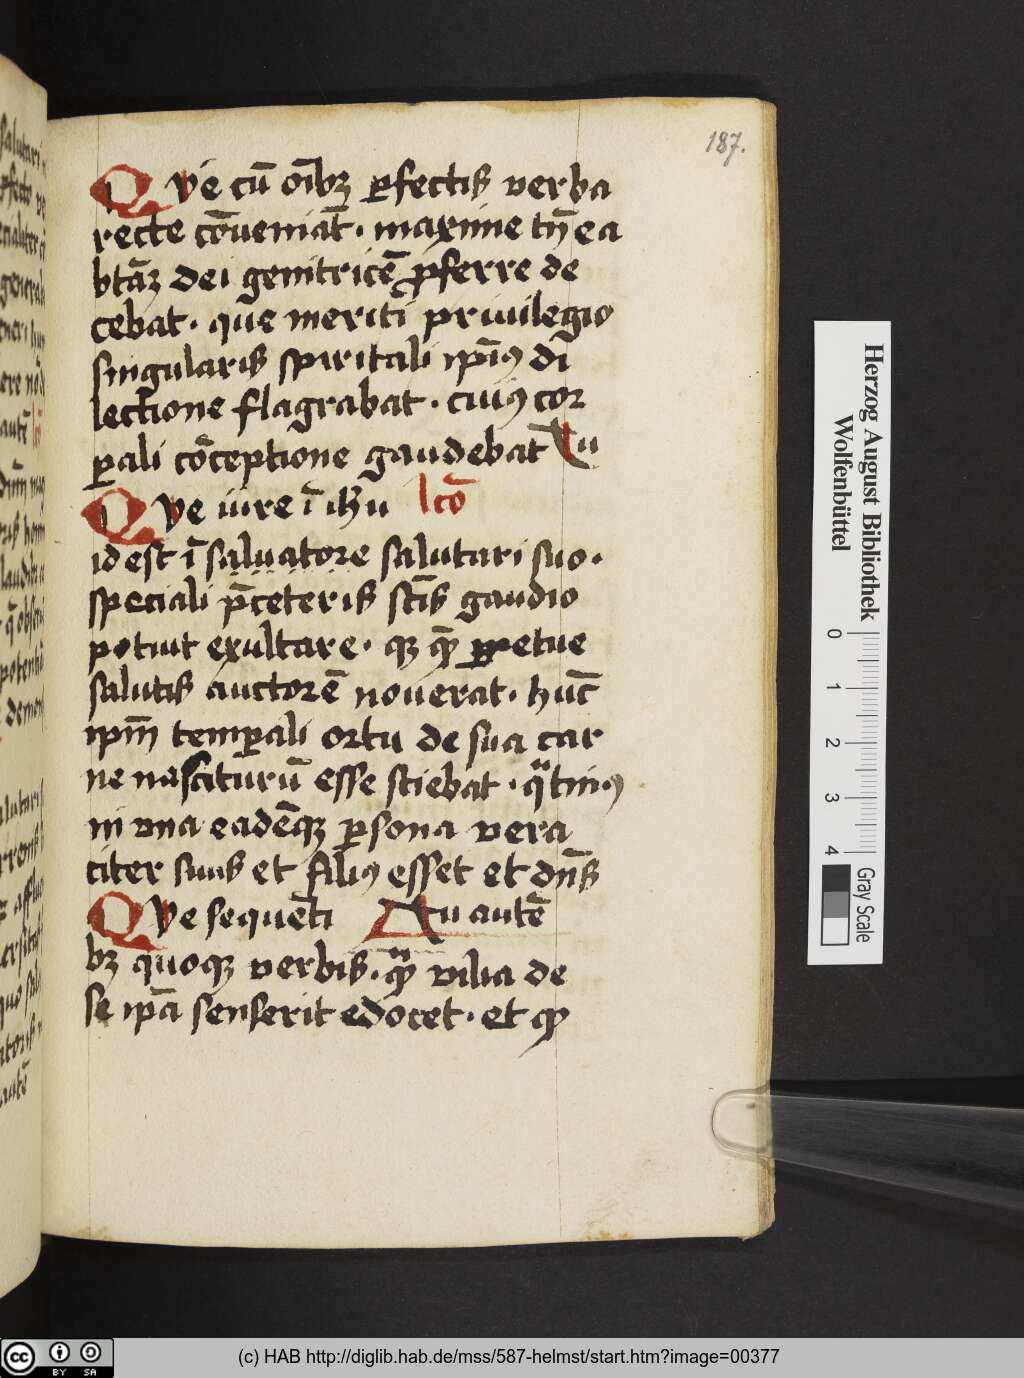 187.
Qve cū oīb₃ ꝑfectis verba
recte cōveniāt · maxime tn̄ ea
btāꝫ dei genitricē ꝓferre de
cebat · que meriti privilegio
singularis spiritali ipīꝰ di
lectione flagrabat · cuiꝰ cor
ꝑali cōceptione gaudebat Tu
Qve iure ī ihū lcō
id est ī salvatore salutari suo ·
speciali p̄ ceteris sctīs gaudio
potuit exultare · qꝫ qm̄ ꝑpetue
salutis auctorē noverat · hūc
ipm̄ temꝑali ortu de sua car
ne nasciturū esse sciebat · qͣtinꝰ
in vna eadēqꝫ ꝑsona vera
citer suus et filiꝰ esset et dn̄s
Qve sequēti Au autē
bꝫ quoqꝫ verbis · qͣm vilia de
se ipā senserit edocet · et qm̄
Herzog August Bibliothek
Wolfenbüttel
0 1 2 3 4
Gray Scale
cc BY SA
(c) HAB http://diglib.hab.de/mss/587-helmst/start.htm?image=00377